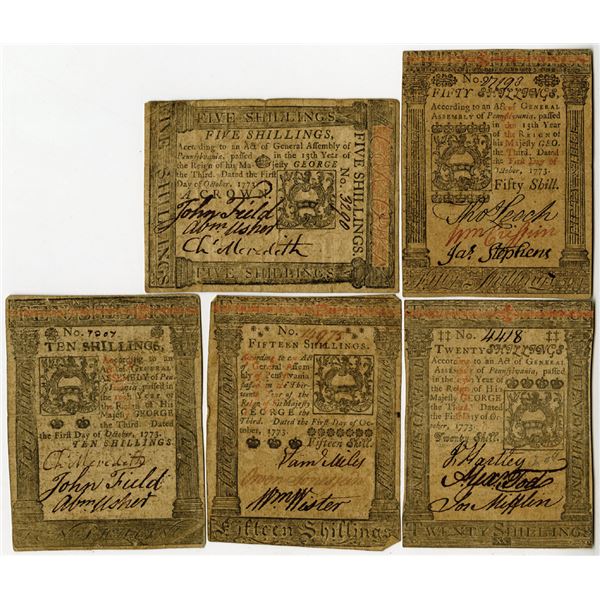 FIVE SHILLINGS
FIVE SHILLINGS.
FIVE SHILLINGS,
According to an Act of General Assembly of
Pennsylvania, passed in the 13th Year of
the Reign of his Majesty GEORGE
the Third. Dated the First
Day of October, 1773.
A CROWN
No.
John Field
Abm Usher
Chs Meredith
FIVE SHILLINGS.
FIVE SHILLINGS
No.
FIFTY SHILLINGS,
According to an Act of GENERAL
ASSEMBLY of Pennsylvania, passed
in the 13th Year
of the REIGN of
his Majesty GEO.
the Third. Dated
the First Day of
October, 1773.
Fifty Shill.
Thos Leech
Wm Crispin
Jas. Stephens
Fifty Shillings
No. 7907
TEN SHILLINGS,
According to an
Act of GENERAL
ASSEMBLY of Pennsylvania
passed in
the 13th Year of
the Reign of His
Majesty GEORGE
the Third. Dated
the First Day of October, 1773.
TEN SHILLINGS.
Chs Meredith
John Field
Abm Usher
No.
FIFTEEN SHILLINGS.
According to an Act
of General Assembly
of Pennsylvania
passed in the Thirteenth
Year of the
Reign of His Majesty
GEORGE the
Third. Dated the First Day of October,
1773. Fifteen Shill.
Saml Miles
Wm Wister
Fifteen Shillings
No. 4418
TWENTY SHILLINGS
According to an Act of GENERAL
ASSEMBLY of Pennsylvania, passed
in the 13th Year
of the REIGN of His
Majesty GEORGE
the Third. Dated
the First Day of October,
1773.
Twenty Shill.
J. Hartley
Alexr Tod
Jon Mifflin
TWENTY SHILLINGS